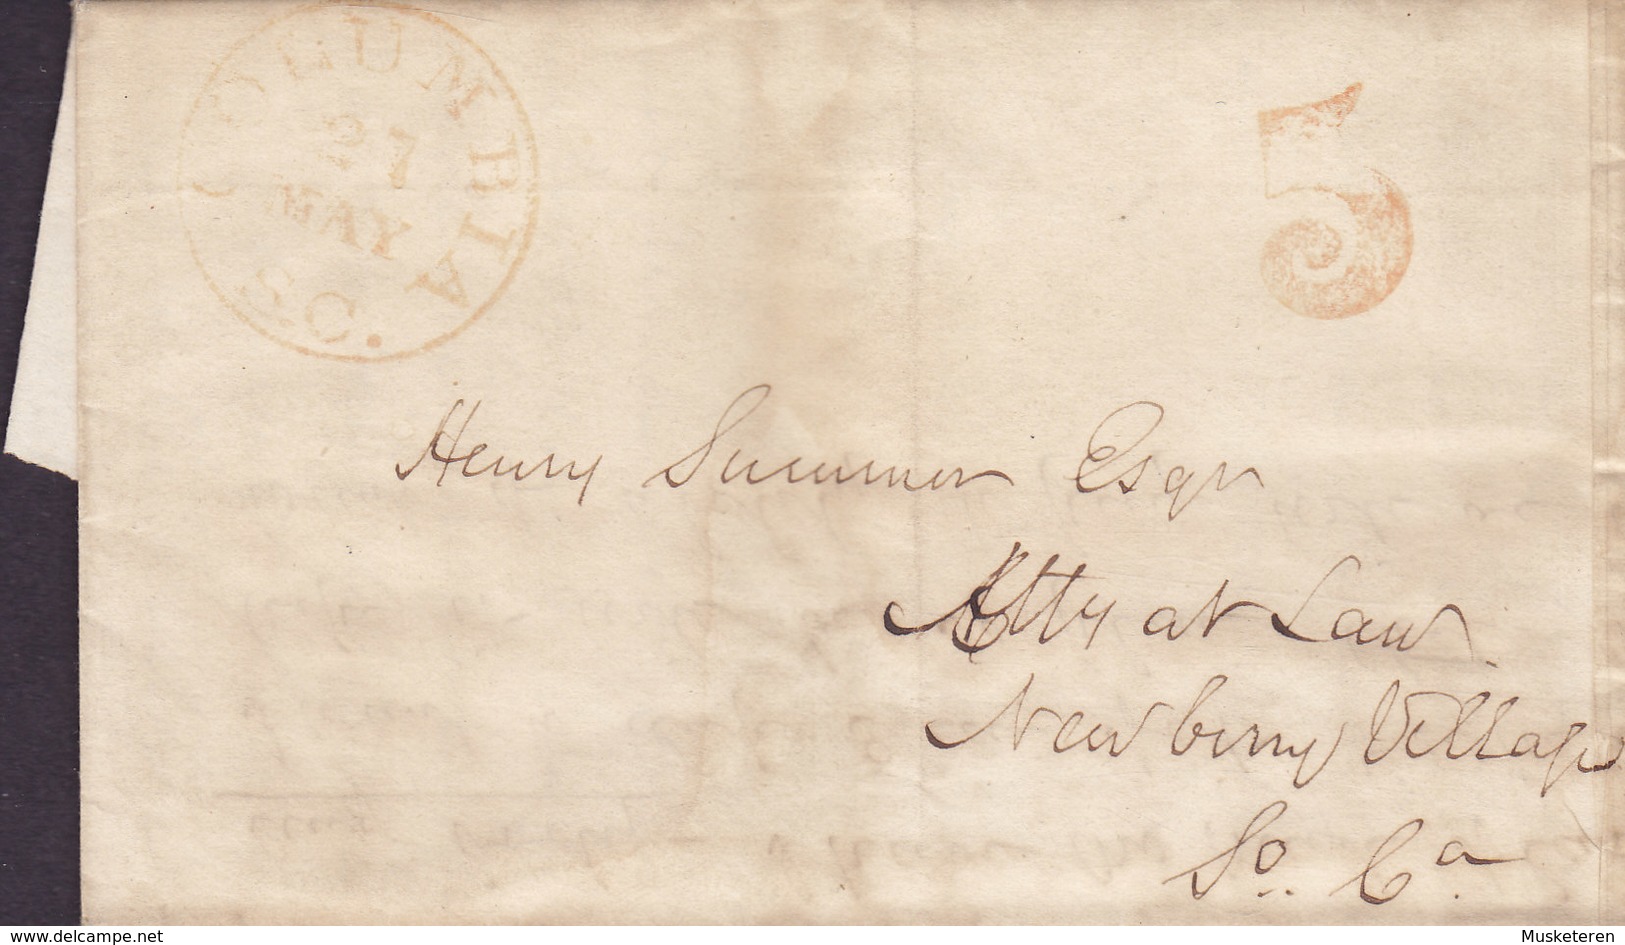 COLUMBIA
27
MAY
S.C.
5
Henry Summer Esqr
Atty at Law.
Newberry Village
So. Ca.
www.delcampe.net
Musketeren